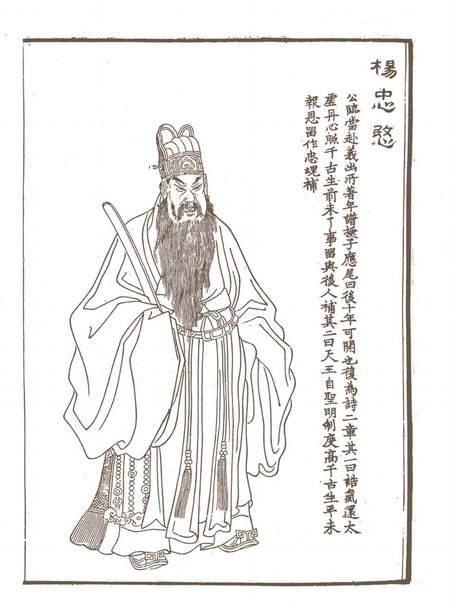 楊忠愍
公臨當赴義出所著年譜授子應尾曰後十年可開也復為詩二章其一曰誥氣還太
虛丹心照千古生前未了事留與後人補其二曰天王自聖明制度高千古生平未
報恩留作忠魂補